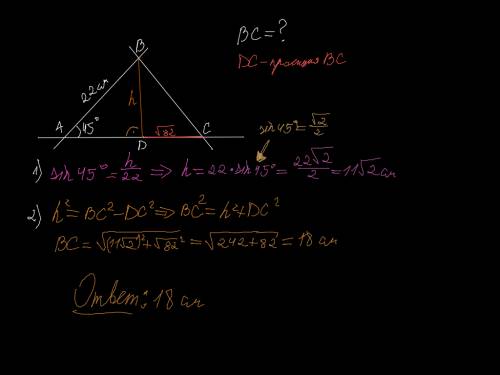 BC=?
DC-проекция BC
B
22см
h
A 45° √82 C
D
sin45°=√2/2
1) sin 45°=h/22 ⇒ h=22·sin45°=22√2/2=11√2см
2) h²=BC²-DC²⇒BC²=h²+DC²
BC=√((11√2)²+√82²)=√(242+82)=18 см
Ответ: 18 см